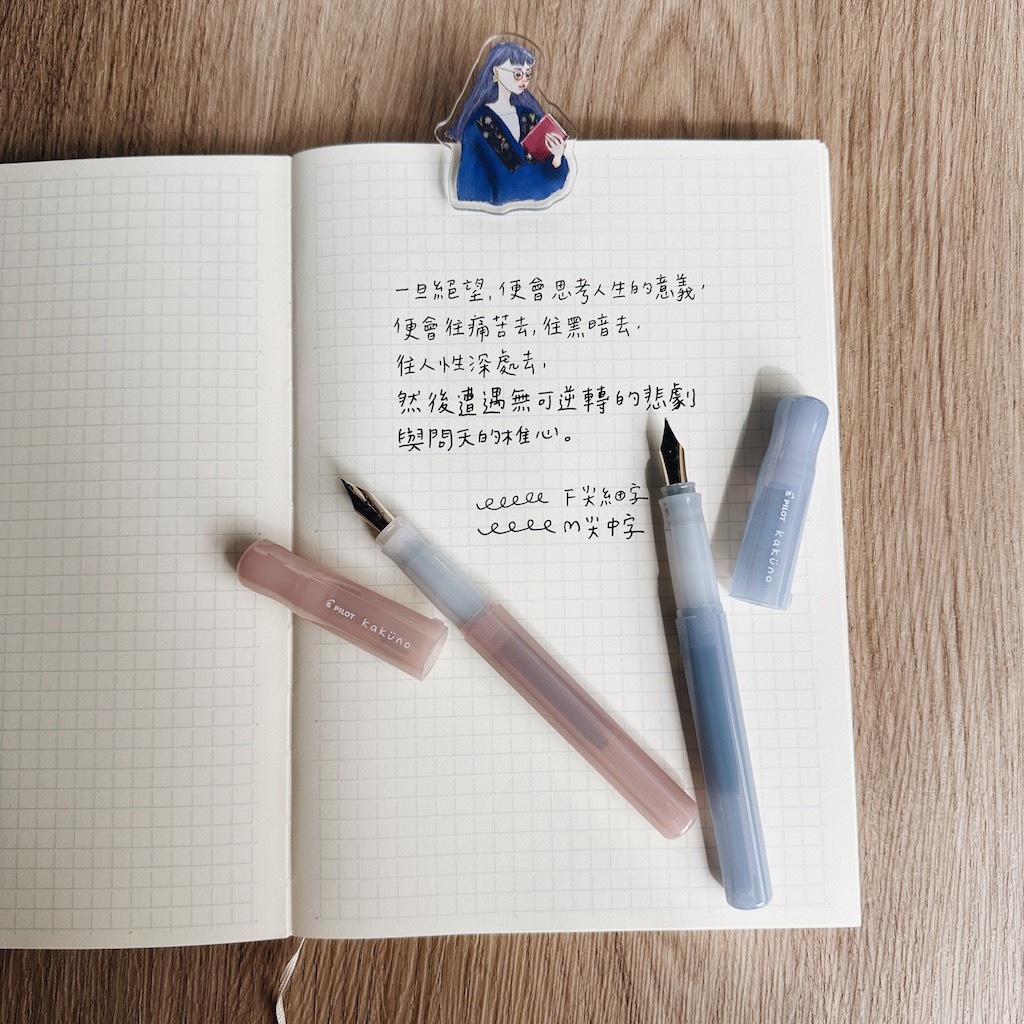 一旦絕望,便會思考人生的意義,
便會往痛苦去,往黑暗去,
往人性深處去,
然後遭遇無可逆轉的悲劇
與問天的椎心。
F尖細字
M尖中字
PILOT kaküno
PILOT kaküno